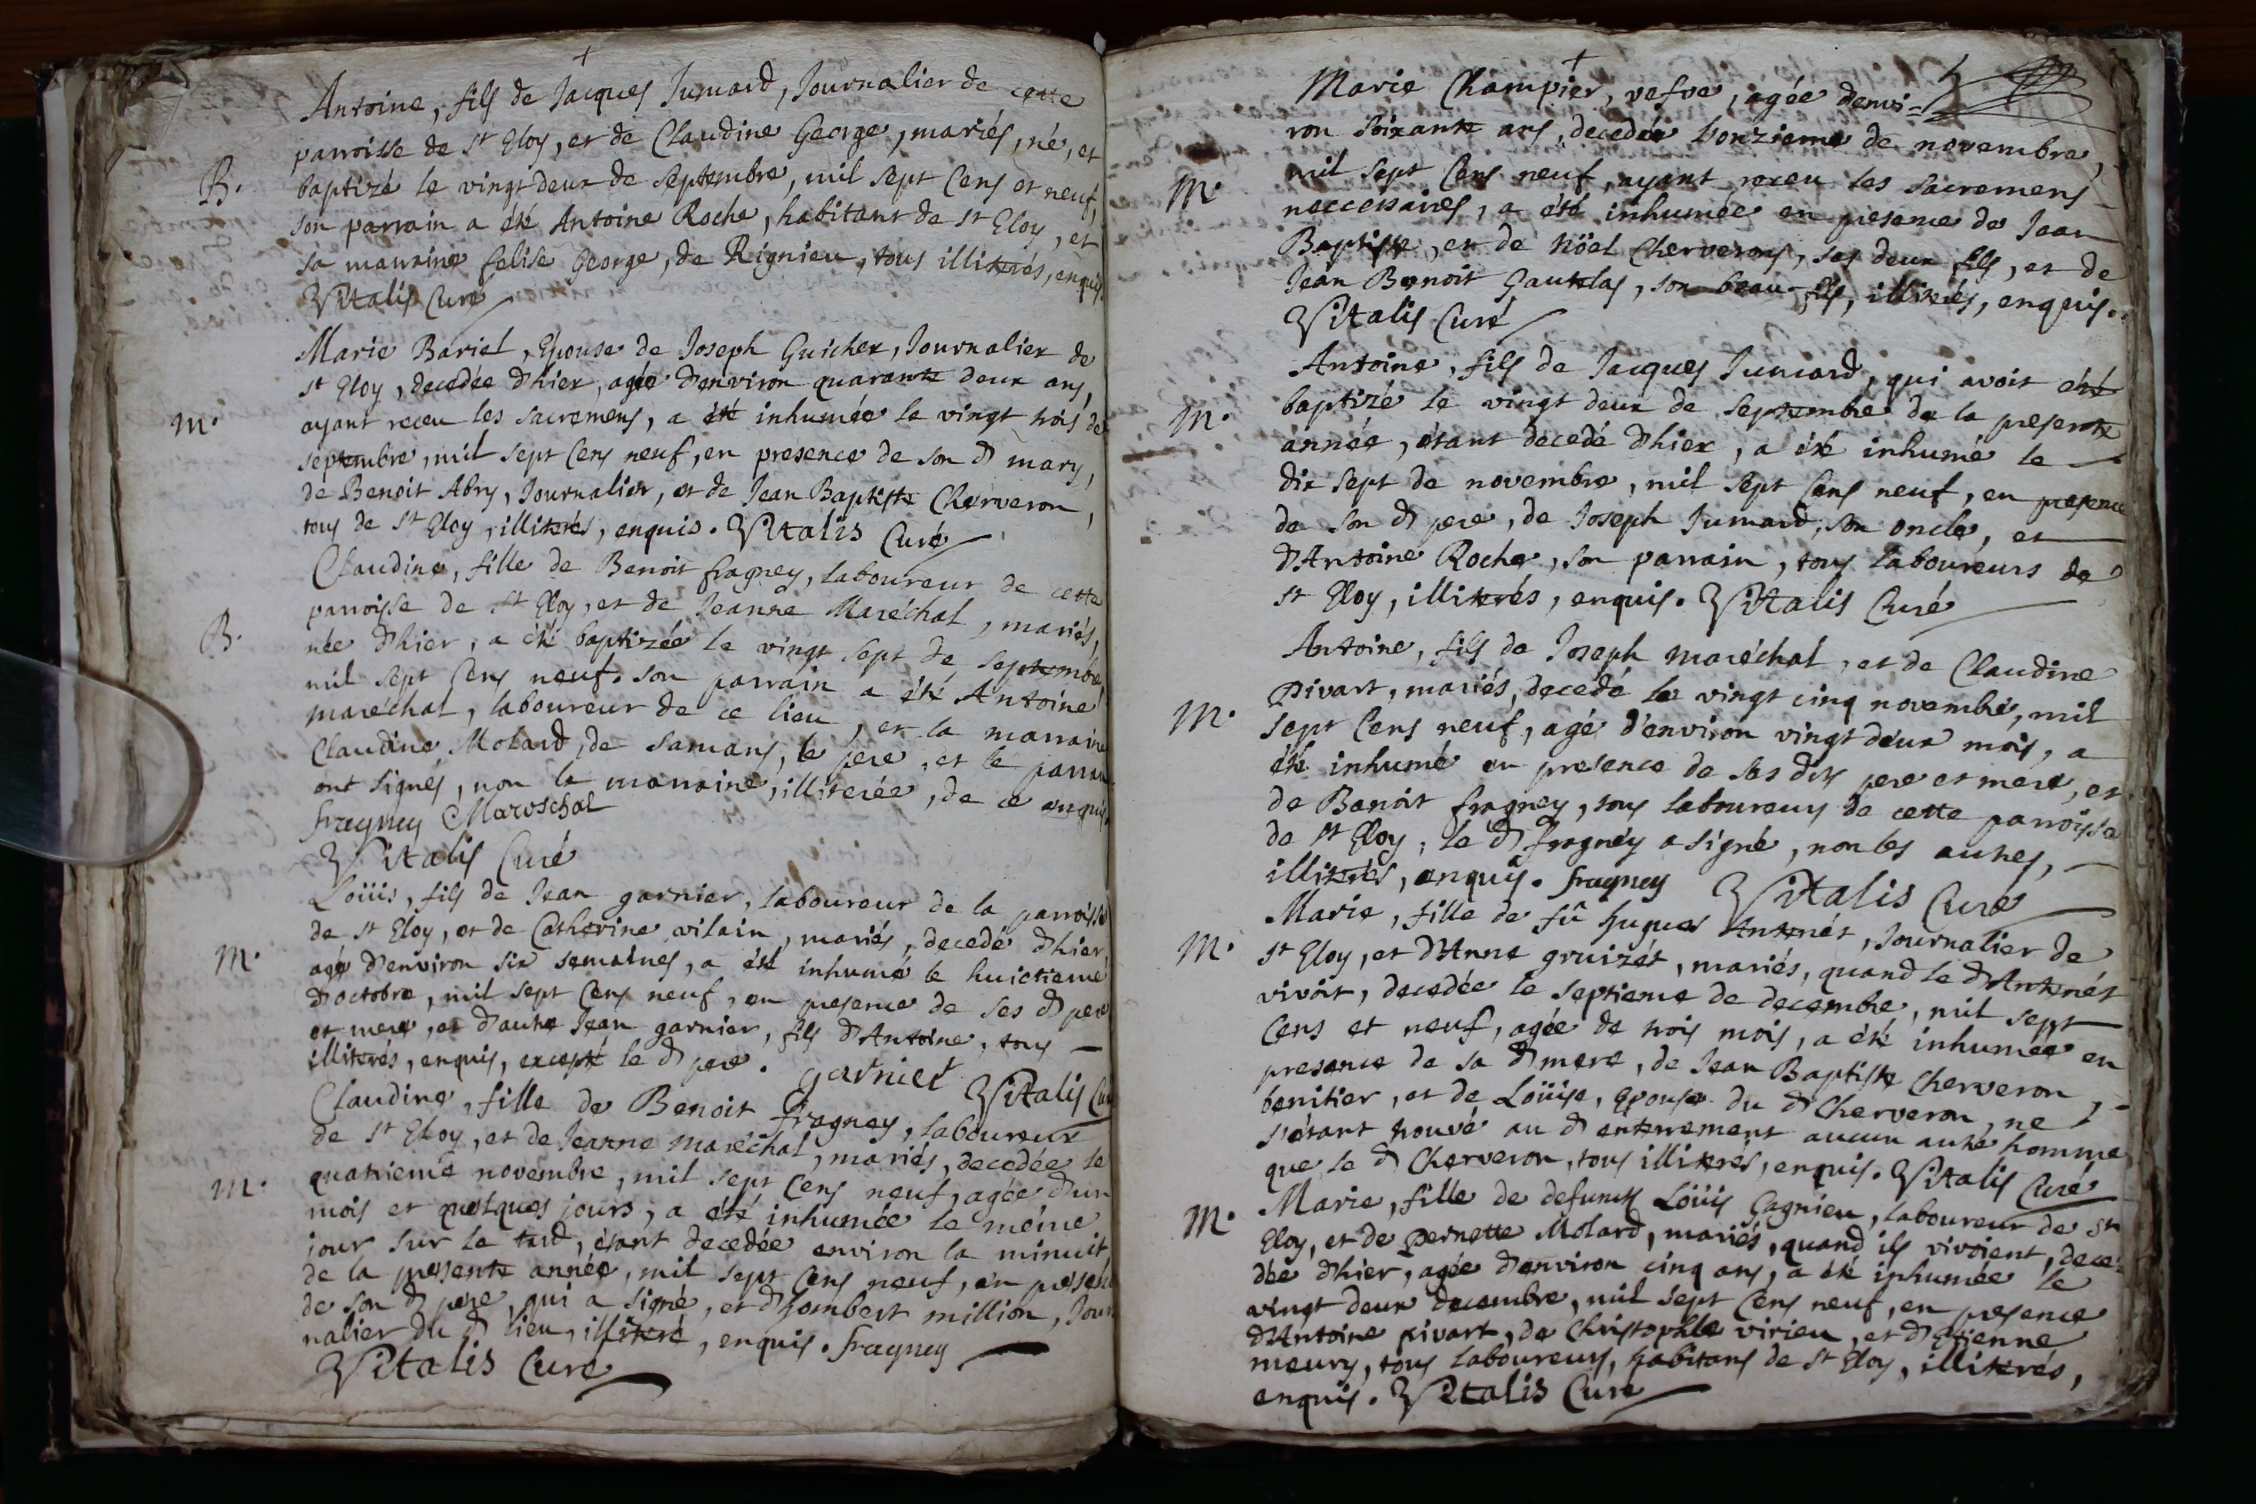 Antoine, fils de Jacques Jumard, Journalier de cette
parroisse de St Eloy, et de Claudine George, mariés, né, et
B.
baptizé le vingt deux de septembre, mil sept cens et neuf,
son parrain a été Antoine Roche, habitant de St Eloy, et
sa marraine felise George, de Rignieu, tous illiterés, enquis.
Vitalis Curé
Marie Bariel, Epouse de Joseph Guicher, Journalier de
st Eloy, decedée d'hier, agée d'environ quarante deux ans,
m.
ayant receu les sacremens, a été inhumée le vingt trois de
septembre, mil sept cens neuf, en presence de son d mary,
de Benoit Abry, Journalier, et de Jean Baptiste Cherveron,
tous de St Eloy, illiterés, enquis. Vitalis Curé
Claudine, fille de Benoit fragney, laboureur de cette
parroisse de St Eloy, et de Jeanne Maréchal, mariés,
B.
née d'hier, a été baptizée le vingt sept de septembre
mil sept cens neuf. son parrain a été Antoine
maréchal, laboureur de ce lieu, et la marraine
Claudine Molard, de samans, le pere, et le parrain
ont signés, non la marraine, illiterée, de ce enquis.
fragney Maroschal
Vitalis Curé
Loüis, fils de Jean garnier, laboureur de la parroisse
de st Eloy, et de Catherine vilain, mariés, decedé d'hier,
m.
agé d'environ six semaines, a été inhumé le huictieme
d'octobre, mil sept cens neuf, en presence de ses d pere
et mere, et d'autre Jean garnier, fils d'Antoine, tous
illiterés, enquis, excepté le d pere. garnier Vitalis Curé
Claudine, fille de Benoit fragney, laboureur
de st Eloy, et de Jeanne maréchal, mariés, decedée le
m.
quatrieme novembre, mil sept cens neuf, agée d'un
mois et quelques jours, a été inhumée le méme
jour sur le tard, étant decedée environ la minuit,
de la presente année, mil sept cens neuf, en presence
de son d pere, qui a signé, et d'hombert million, Jour
nalier du d lieu, illiteré, enquis. fragney
Vitalis Curé
Marie Champier, vefve, agée d'envi=
ron soixante ans, decedée l'onzieme de novembre,
m.
mil sept cens neuf, ayant receu les sacremens
neccessaires, a été inhumée en presence de Jean
Baptiste, et de nöel Cherverons, ses deux fils, et de
Jean Benoit Gautelas, son beau-fils, illiterés, enquis.
Vitalis Curé
Antoine, fils de Jacques Jumard, qui avoit été
m.
baptizé le vingt deux de septembre de la presente
année, étant decedé d'hier, a été inhumé le
dix sept de novembre, mil sept cens neuf, en presence
de son d pere, de Joseph Jumard, son oncle, et
d'Antoine Roche, son parrain, tous laboureurs de
st Eloy, illiterés, enquis. Vitalis Curé
Antoine, fils de Joseph maréchal, et de Claudine
m.
Pivart, mariés, decedé le vingt cinq novembre, mil
sept cens neuf, agé d'environ vingt deux mois, a
été inhumé en presence de ses dits pere et mere, et
de Benoit fragney, tous laboureurs de cette parroisse
de St Eloy, le d fragney a signé, non les autres,
illiterés, enquis. fragney Vitalis Curé
Marie, fille de fû hugues Antenét, Journalier de
m.
st Eloy, et d'Anne gruizét, mariés, quand le d Antenét
vivoit, decedée le septieme de decembre, mil sept
cens et neuf, agée de trois mois, a été inhumée en
presence de sa d mere, de Jean Baptiste Cherveron,
benitier, et de Loüise, Epouse du d Cherveron, ne
s'étant trouvé au d enterrement aucun autre homme
que le d Cherveron, tous illiterés, enquis. Vitalis Curé
m.
Marie, fille de defuncts Loüis Gagnieu, laboureur de St
Eloy, et de Pernette Molard, mariés, quand ils vivoient, dece=
dée d'hier, agée d'environ cinq ans, a été inhumée le
vingt deux decembre, mil sept cens neuf, en presence
d'Antoine pivart, de Christophle virieu, et d'Etienne
meury, tous laboureurs, habitans de st Eloy, illiterés,
enquis. Vitalis Curé